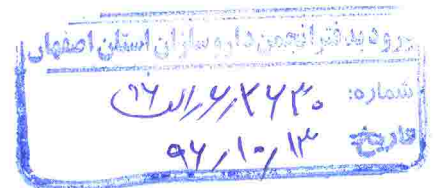 ورود به دفتر انجمن داروسازان استان اصفهان
شماره:
تاریخ ۹۶/۱۰/۱۳